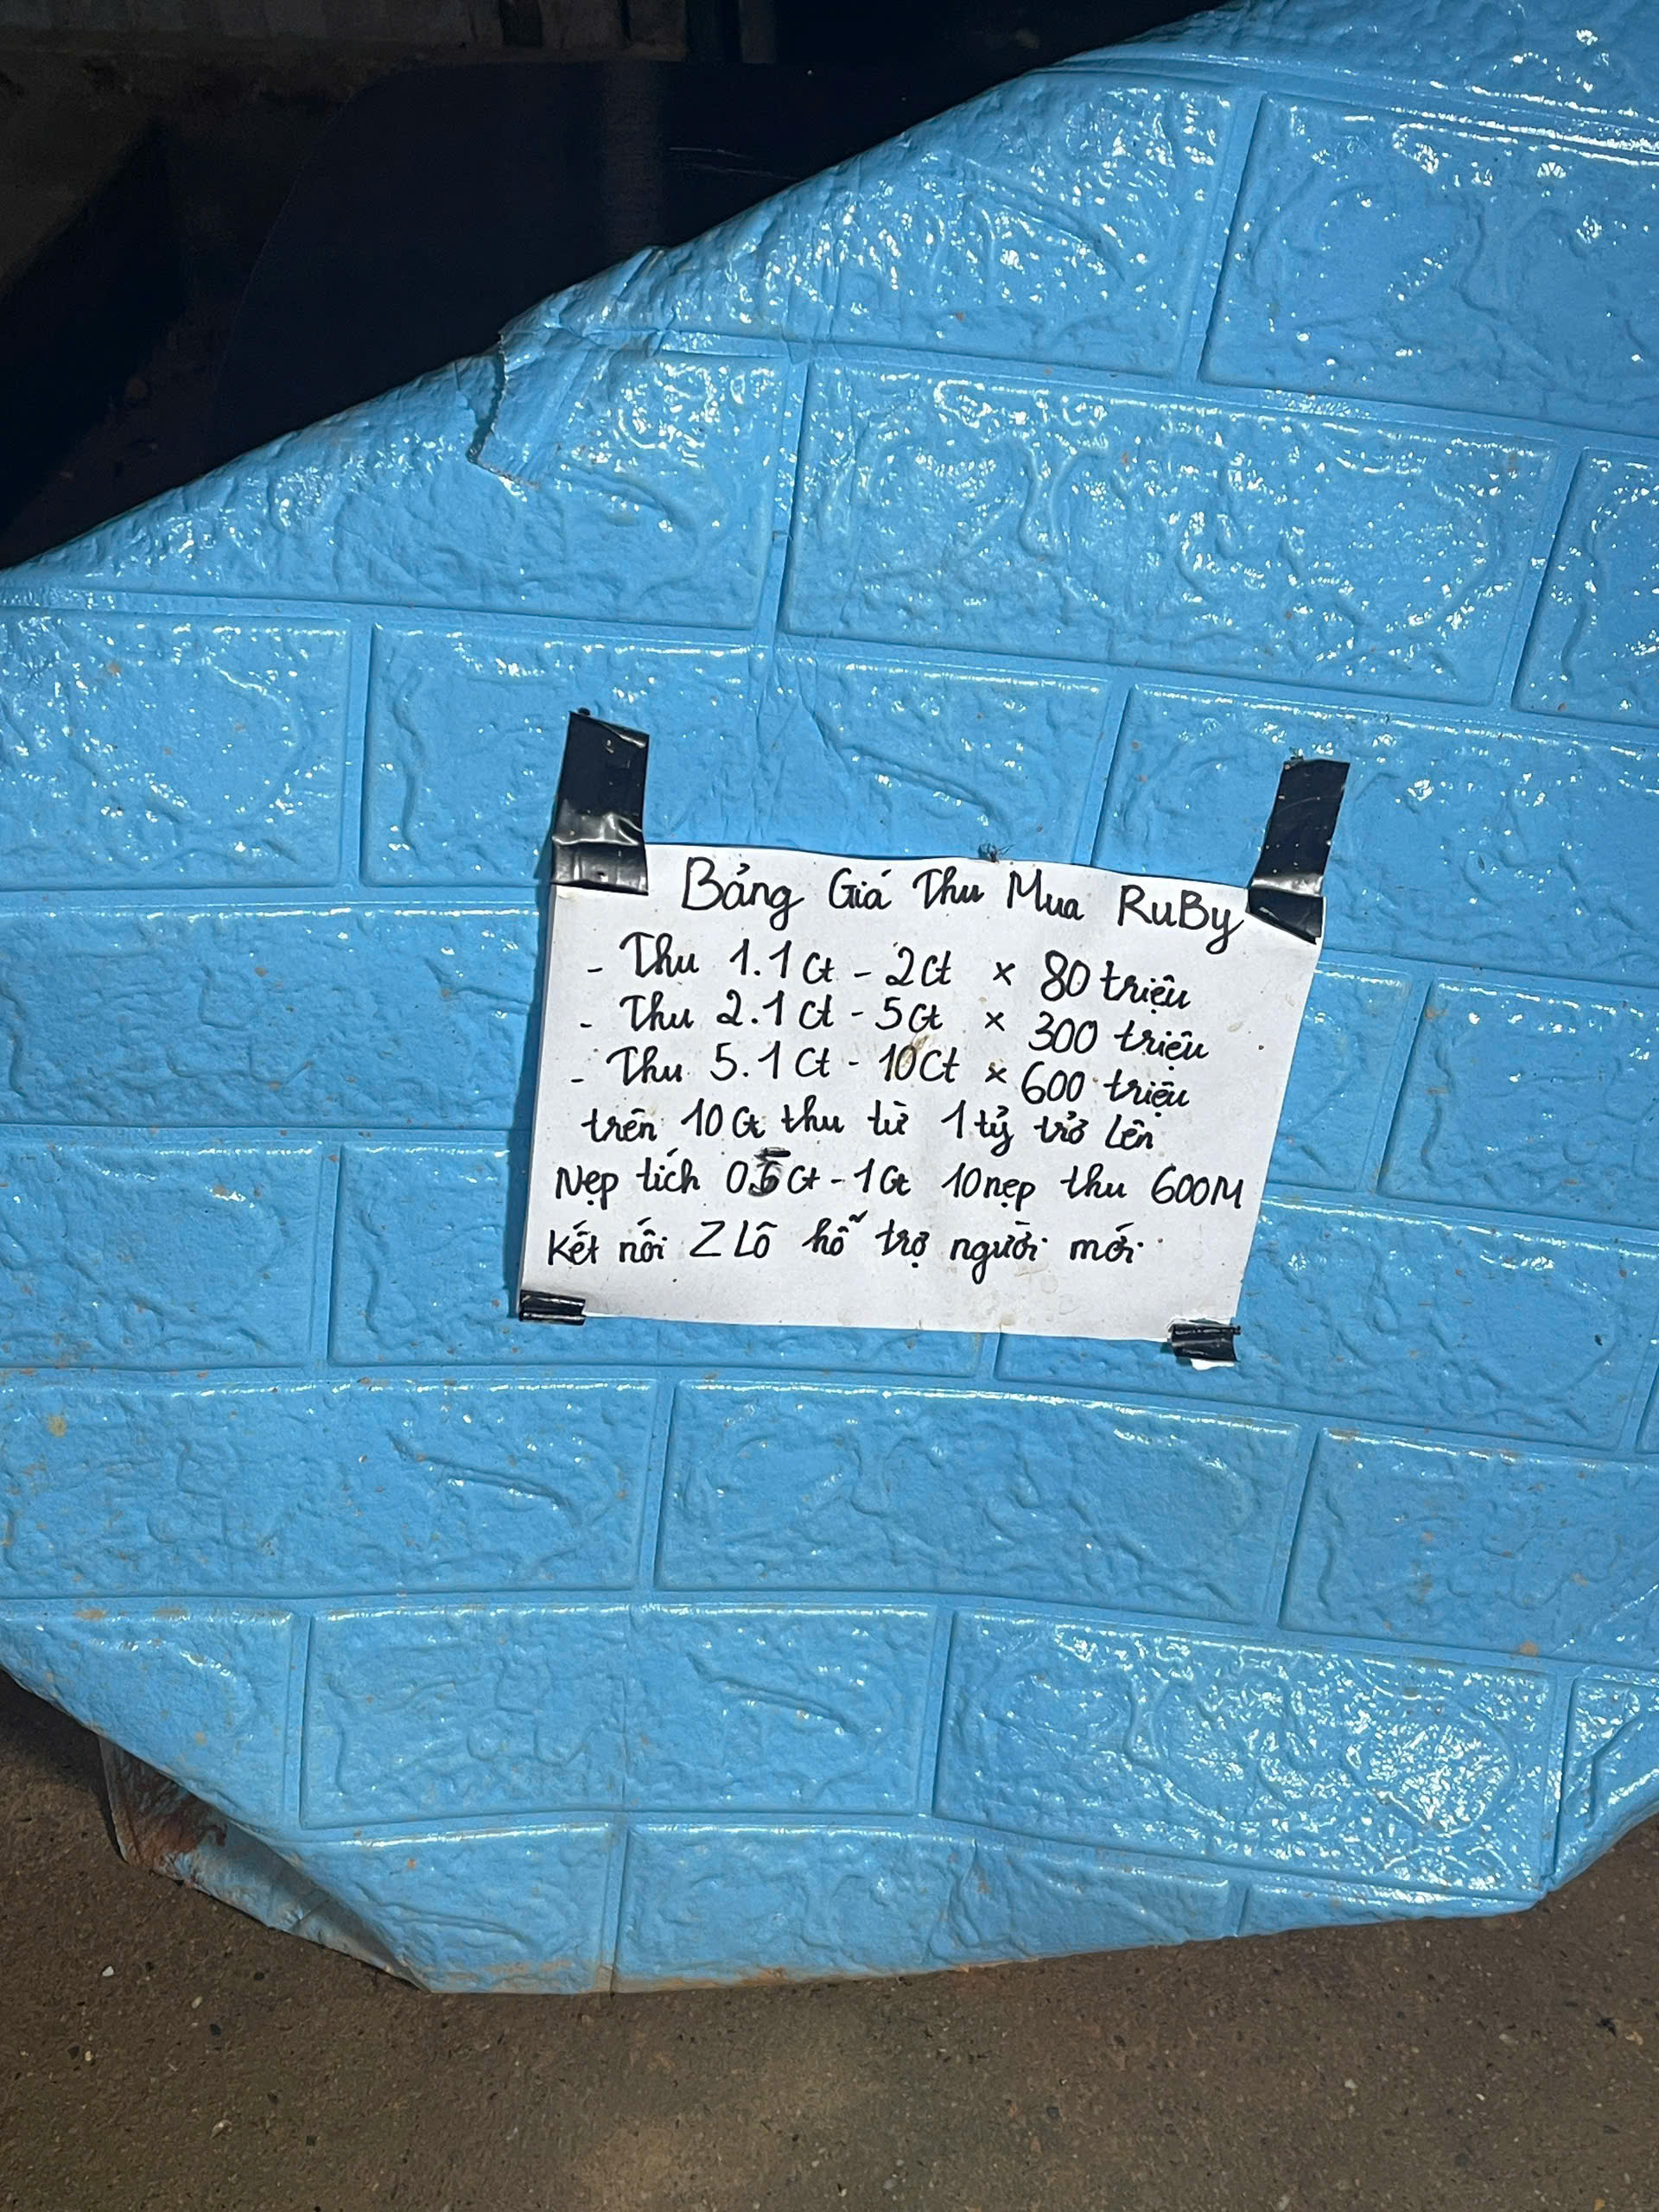 Bảng Giá Thu Mua RuBy
- Thu 1.1 Ct - 2 Ct × 80 triệu
- Thu 2.1 Ct - 5 Ct × 300 triệu
- Thu 5.1 Ct - 10 Ct × 600 triệu
trên 10 Ct thu từ 1 tỷ trở lên
Nẹp tích 0.5 Ct - 1 Ct 10 nẹp thu 600M
Kết nối Z Lô hỗ trợ người mới